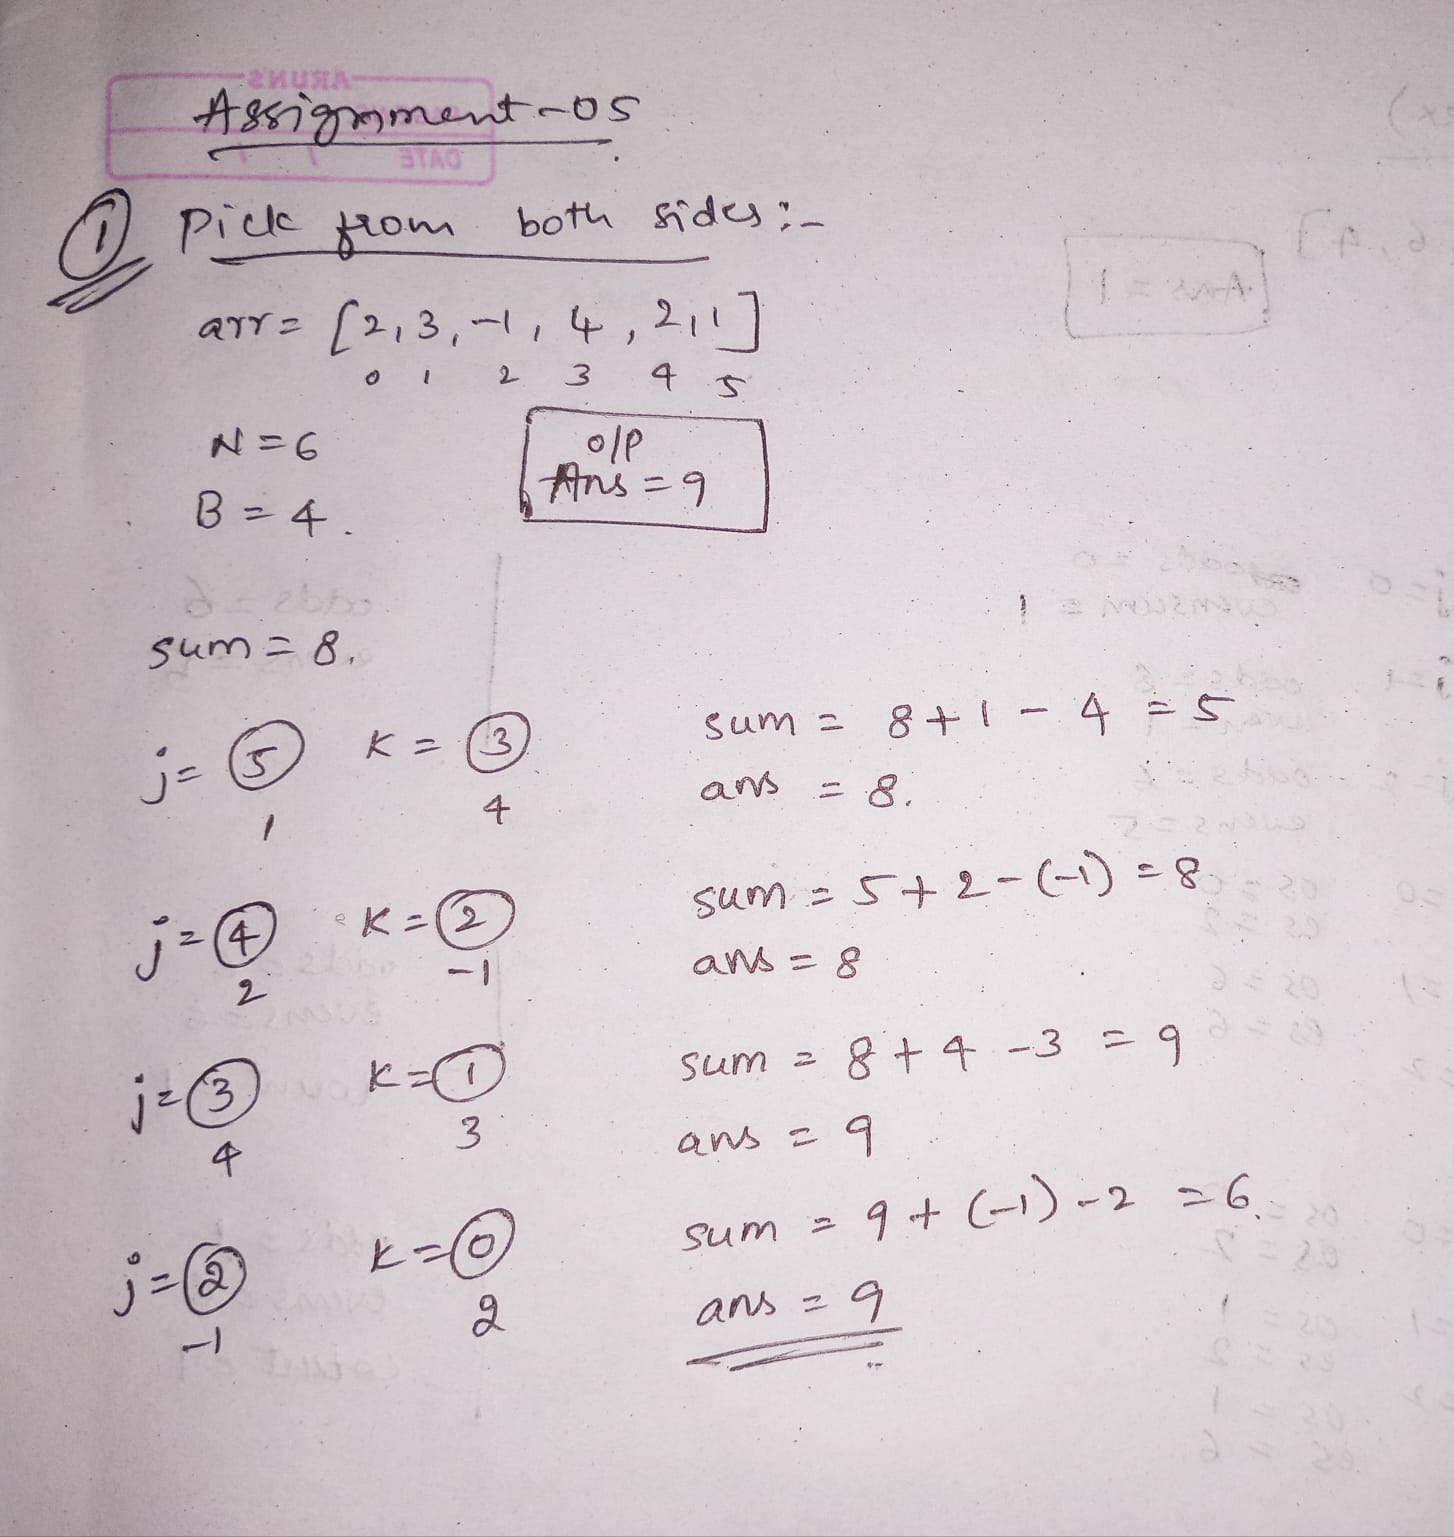 Assignment-05
① Pick from both sides :-
arr = [2, 3, -1, 4, 2, 1]
0 1 2 3 4 5
N = 6
B = 4.
O/P
Ans = 9
sum = 8.
j = 5 K = 3 sum = 8 + 1 - 4 = 5
1 4 ans = 8.
j = 4 K = 2 sum = 5 + 2 - (-1) = 8
2 -1 ans = 8
j = 3 K = 1 sum = 8 + 4 - 3 = 9
4 3 ans = 9
j = 2 K = 0 sum = 9 + (-1) - 2 = 6.
-1 2 ans = 9